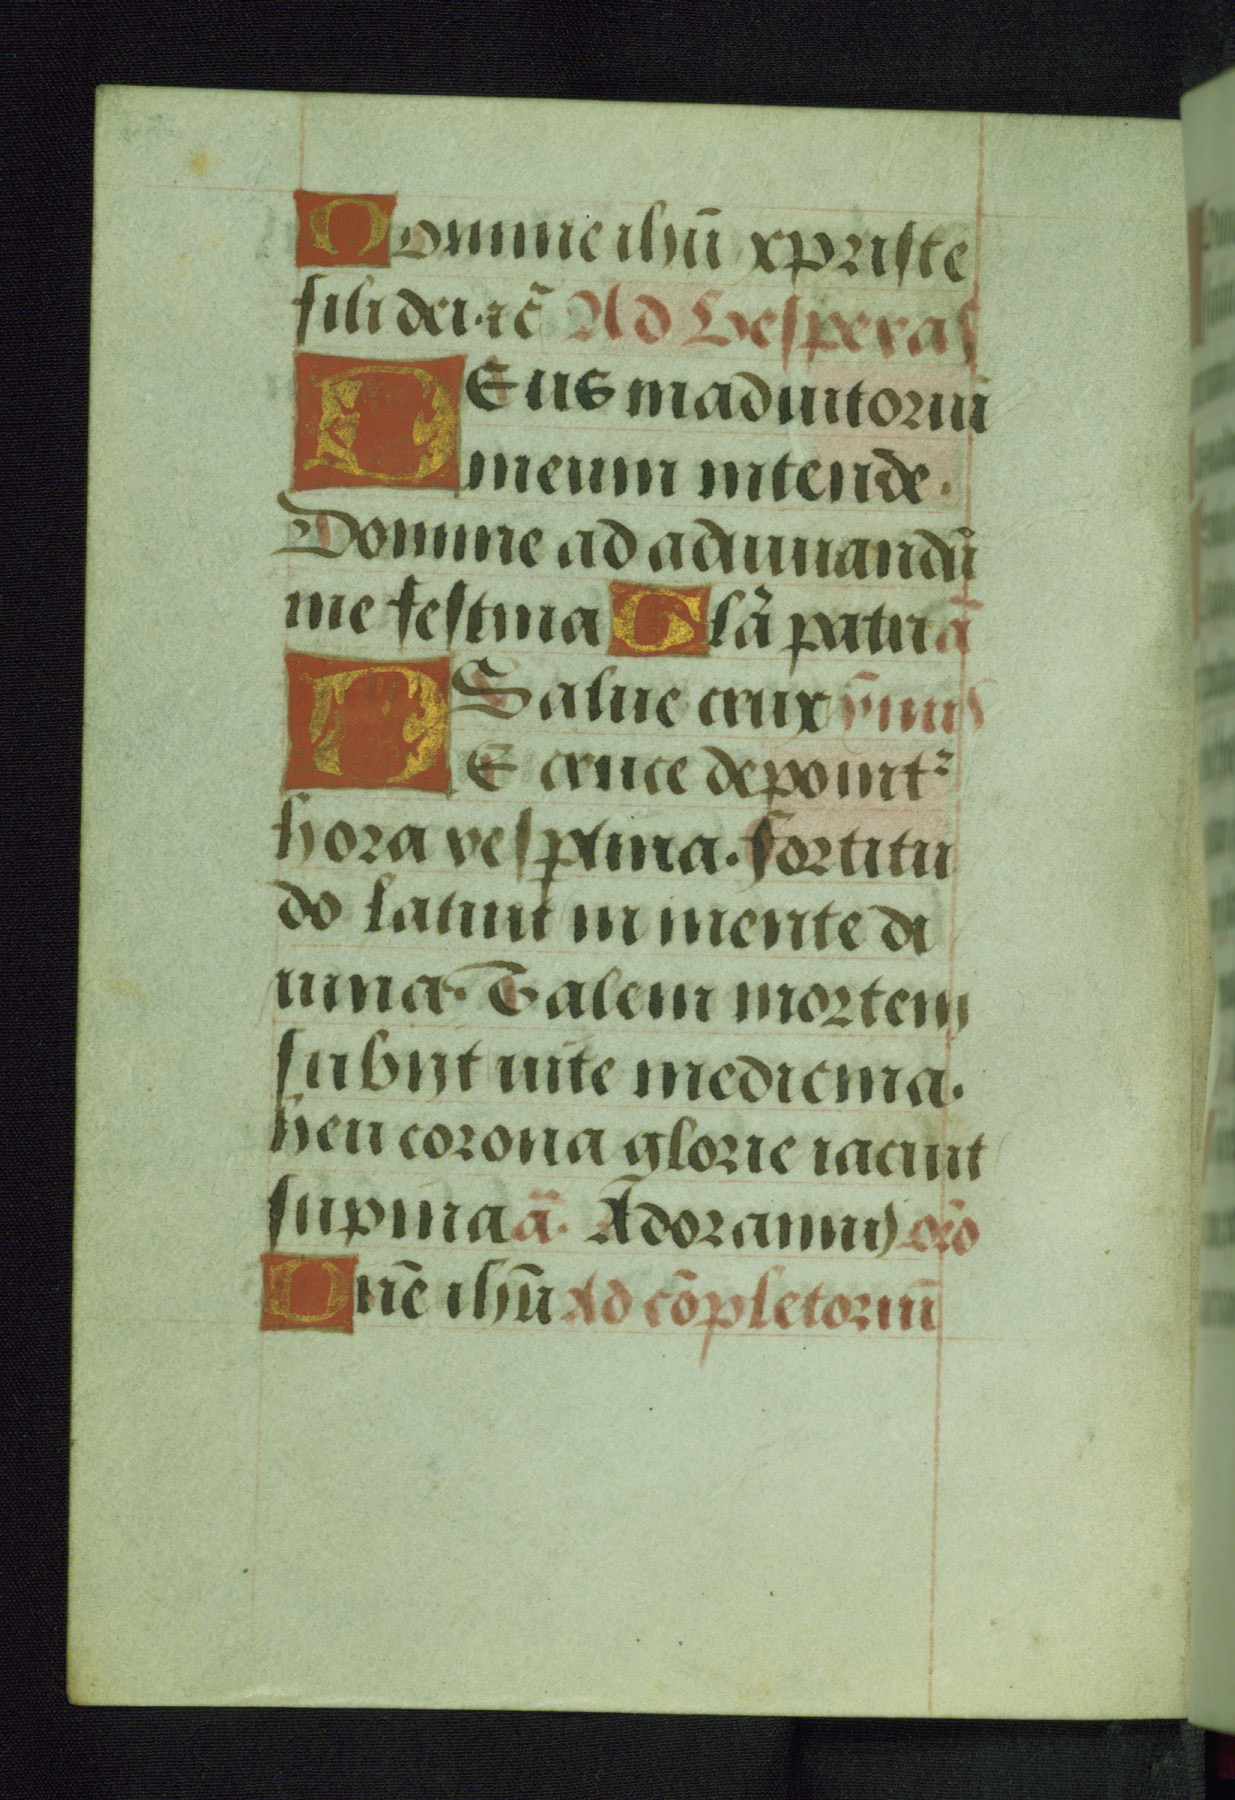 Domine ihū xpriste
fili dei·⁊c̄ Ad Vesperas
DEus in adiutoriū
meum intende.
Domine ad adiuuandū
me festina Glā patri ā
Salue crux ȳmus
DE cruce deponit᷑
hora vesꝑtina. fortitu
do latuit in mente di
uina. Talem mortem
subijt uite medicina.
heu corona glorie iacuit
supina ā. Adoramus oro
Dn̄e ihū Ad cōpletoriū